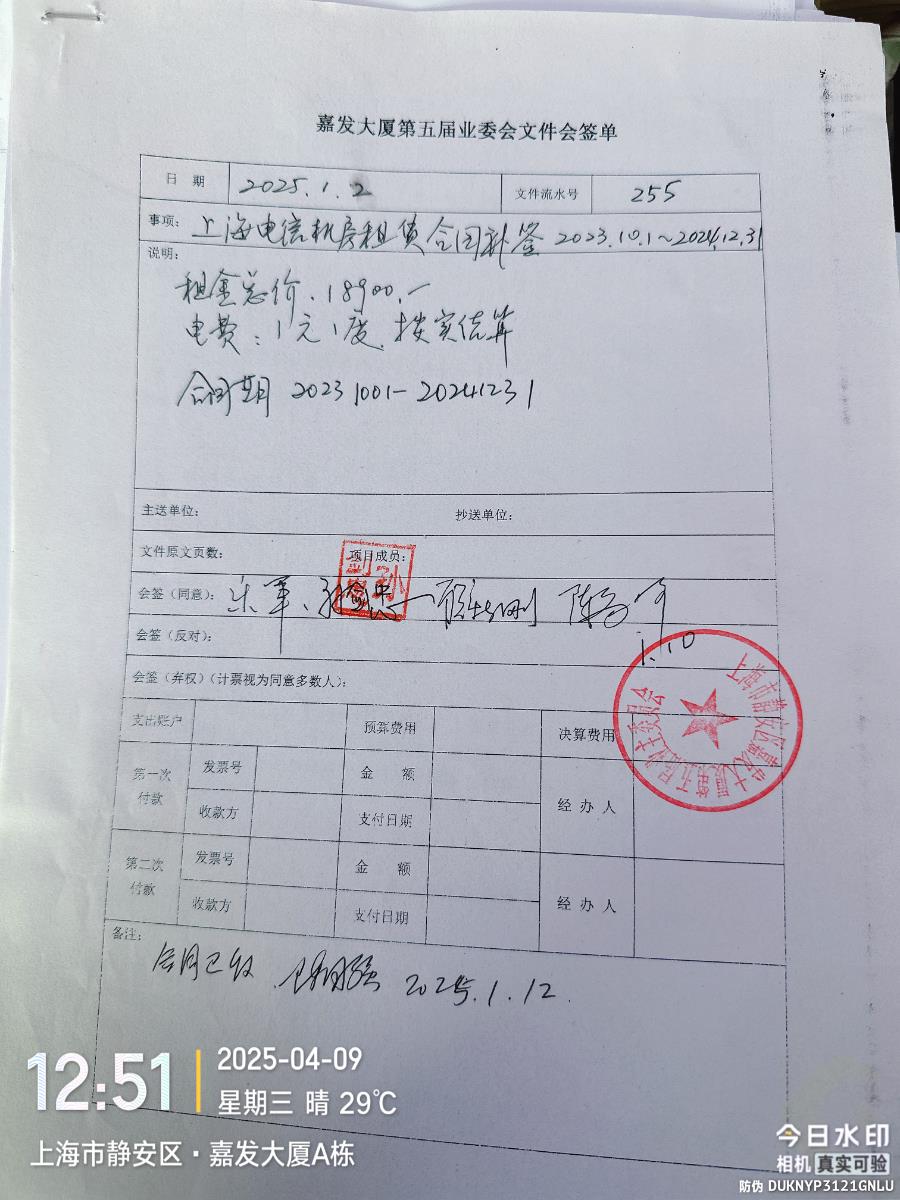 嘉发大厦第五届业委会文件会签单
日 期 2025.1.2 文件流水号 255
事项: 上海电信机房租赁合同补签 2023.10.1~2024.12.31
说明:
租金总价.18900.一
电费:1元1度.按实结算
合同期 20231001-20241231
主送单位: 抄送单位:
文件原文页数: 项目成员:
会签(同意):
1.10
会签(反对):
会签(弃权)(计票视为同意多数人):
支出账户 预算费用 决算费用
第一次付款 发票号 金 额 经办人
收款方 支付日期
第二次付款 发票号 金 额 经办人
收款方 支付日期
备注:
合同已收 2025.1.12
12:51 2025-04-09
星期三 晴 29℃
上海市静安区·嘉发大厦A栋
今日水印
相机 真实可验
防伪 DUKNYP3121GNLU